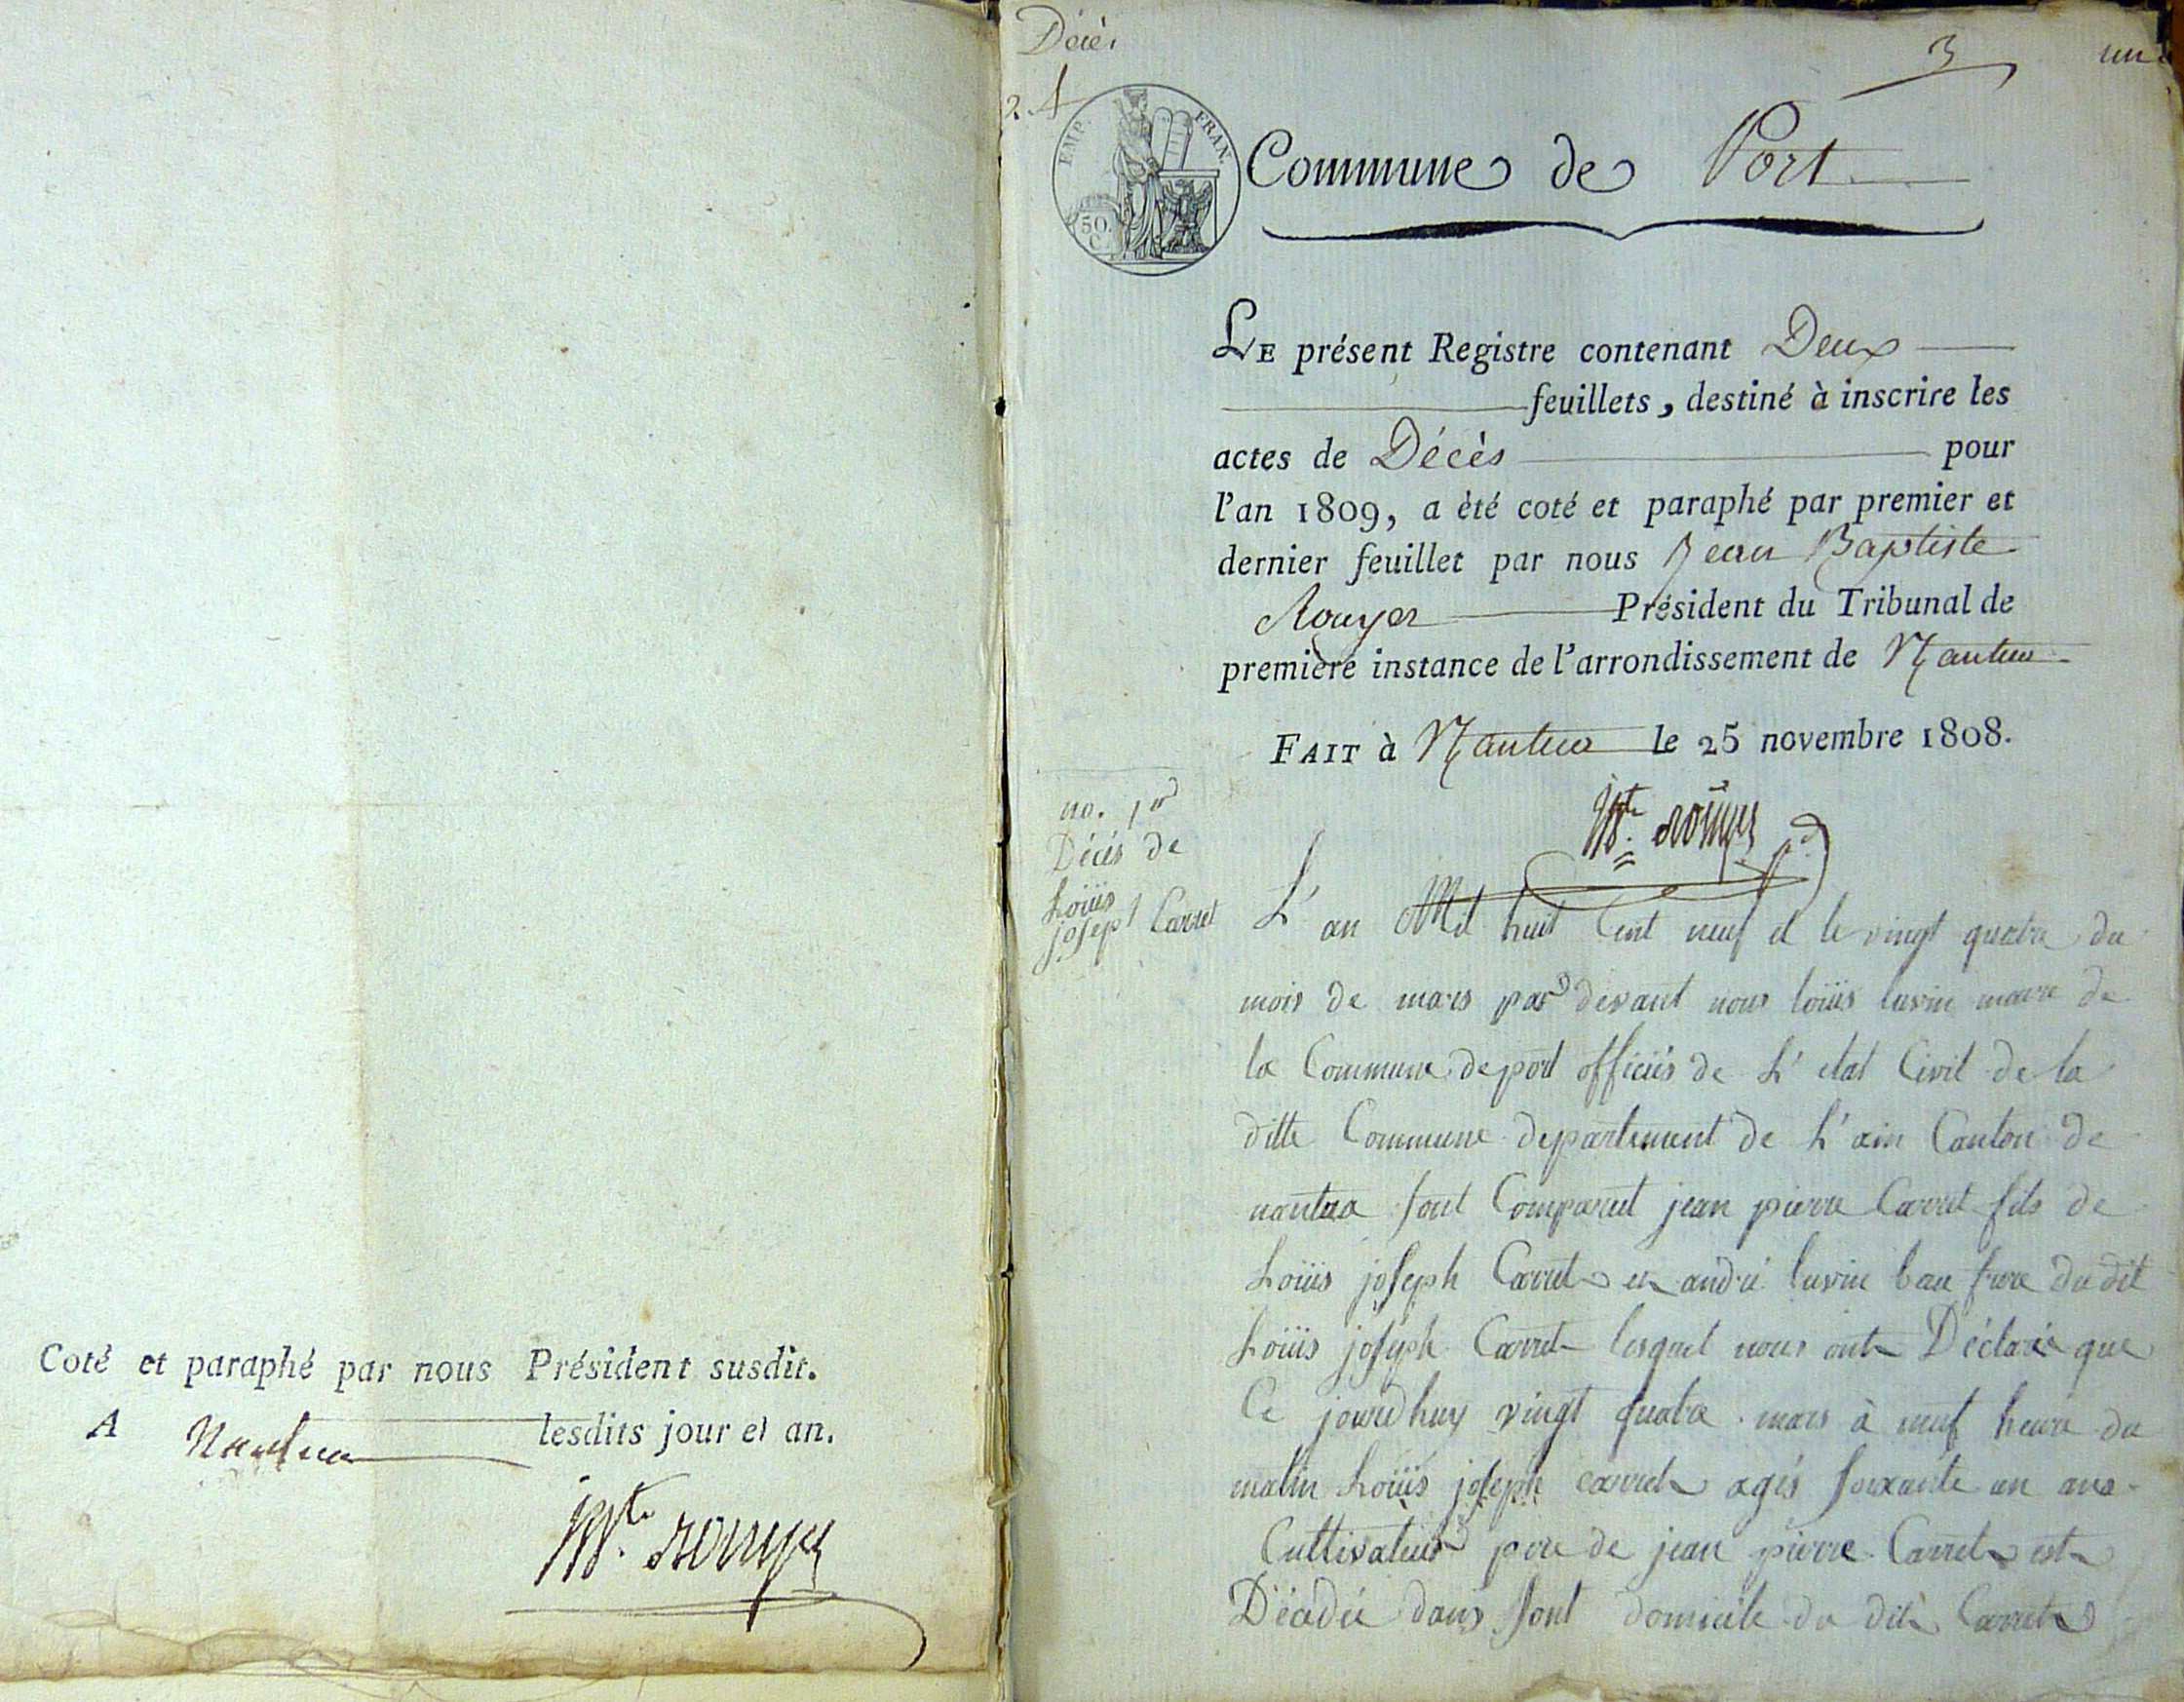 Coté et paraphé par nous Président susdit.
A Nantua lesdits jour et an.
JBte. rouyer
Décès
3
un
EMP. FRAN.
50.
C.
Commune de Port
LE présent Registre contenant Deux
feuillets, destiné à inscrire les
actes de Décès pour
l'an 1809, a èté coté et paraphé par premier et
dernier feuillet par nous Jean Baptiste
Rouyer Président du Tribunal de
première instance de l'arrondissement de Nantua
FAIT à Nantua le 25 novembre 1808.
JBte. roüyer
no. 1er
Décés de
Loüis
joseph Carret
L'an Mil huit Cent neuf et le vingt quatre du
mois de mars par devant nous loüis maire de
la Commune de port officiés de L'etat Civil de la
ditte Commune departement de L'ain Canton de
nantua sont Comparut jean pierre Carret fils de
Loüis joseph Carret et andré beau frere du dit
Loüis joseph Carret lesquel nous ont Déclaré que
Ce jourdhuy vingt quatre mars à neuf heure du
matin Loüis joseph carret agés soixante un ans
Cultivateur pere de jean pierre Carret est
Décédé dans sont domicile du dit Carret